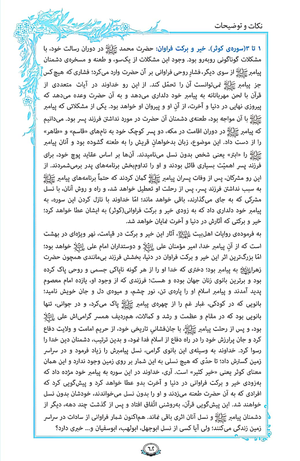 نکات و توضیحات
۱ تا ۳(سوره‌ی کوثر). خیر و برکت فراوان: حضرت محمد ﷺ در دوران رسالت خود، با
مشکلات گوناگونی روبه‌رو بود. وجود این مشکلات از یک‌سو، و طعنه و مسخره‌ی دشمنان
پیامبر ﷺ از سوی دیگر، فشار روحی فراوانی بر آن حضرت وارد می‌کرد؛ فشاری که هیچ کس
جز پیامبر ﷺ نمی‌توانست آن را تحمّل کند. از این رو خداوند در آیات متعددی از
قرآن با لحن مهربانانه به پیامبر خود دلداری می‌دهد و به آن حضرت وعده می‌دهد که
پیروزی نهایی در دنیا و آخرت، از آنِ او و پیروان او خواهد بود. یکی از مشکلاتی که پیامبر
ﷺ با آن مواجه بود، طعنه‌ی دشمنان آن حضرت در مورد نداشتن فرزند پسر بود. می‌دانیم
که پیامبر ﷺ در دوران اقامت در مکه، دو پسر کوچک خود به نام‌های «قاسم» و «طاهر»
را از دست داد. این موضوع، زبان بدخواهانِ قریش را به طعنه گشوده بود و آنان پیامبر
ﷺ را «ابتر» یعنی شخص بدون نسل می‌نامیدند. آن‌ها بر اساس عقاید پوچ خود، برای
فرزند پسر اهمیّت بسیاری قائل بودند و او را تداوم‌بخش برنامه‌های پدر برمی‌شمردند. از
این رو مشرکان، پس از وفات پسران پیامبر ﷺ گمان کردند که حتماً برنامه‌های پیامبر ﷺ
به سبب نداشتن فرزند پسر، پس از رحلت او تعطیل خواهد شد، و راه و روش آنان، با نسل
مشرکی که به جای می‌گذارند، باقی خواهد ماند؛ امّا خداوند با نازل کردن این سوره، به
پیامبر خود دلداری داد که به زودی خیر و برکت فراوانی(کوثر) به ایشان عطا خواهد کرد؛
خیر و برکتی که آثارش در دنیا و آخرت نمایان خواهد شد.
به فرموده‌ی روایات اهل‌بیت، آثار این خیر و برکت در قیامت، نهر ویژه‌ای در بهشت
است که از آنِ پیامبر خدا، امیر مؤمنان علی و دوستداران امام علی خواهد بود؛
امّا بزرگ‌ترین اثر این خیر و برکت فراوان در دنیا، بخشش فرزند بی‌مانندی همچون حضرت
زهرا به پیامبر بود؛ دختری که خدا او را از هر گونه ناپاکی جسمی و روحی پاک کرده
بود و برترین بانوی زنان جهان بوده و هست؛ فرزندی که از وجود او، یازده امام معصوم
پدید آمدند و پیامبر اسلام او را پاره‌ی تن، نور چشم، و میوه‌ی دل و جان خویش نامید؛
بانویی که در کودکی، غبار غم را از چهره‌ی پیامبر ﷺ پاک می‌کرد، و در جوانی، تنها
بانویی بود که در مقام و عظمت و رشد و کمالات، هم‌ردیف همسر گرامی‌اش علی
بود، و پس از رحلت پیامبر ﷺ با جان‌فشانیِ تاریخی خود، از حریم امامت و ولایت دفاع
کرد و جان پرارزش خود را در راه دفاع از اسلام فدا نمود، و بدین ترتیب، دشمنان دین خدا را
رسوا کرد. خداوند به وسیله‌ی این بانوی گرامی، نسل پیامبرش را زیاد فرمود و در سراسر
زمین گسترش داد؛ تا حدّی که هیچ نسلی به این شمار بر روی زمین وجود ندارد و این همان
معنای کوثر یعنی «خیر کثیر» است. آری، خداوند در این سوره به پیامبر خود مژده داد که
به‌زودی خیر و برکت فراوانی در دنیا و آخرت بدو عطا خواهد کرد و پیش‌گویی کرد که
افرادی که به آن حضرت طعنه می‌زدند و او را بدون نسل می‌خواندند، خودشان بدون نسل
خواهند شد. این پیش‌گویی قرآن، به‌روشنی اتّفاق افتاد و پس از گذشت چند دهه، دیگر از
دشمنان پیامبر ﷺ و نسل آنان اثری باقی نماند. هم‌اکنون شمار فراوانی از سادات در سراسر
زمین زندگی می‌کنند؛ ولی آیا کسی از نسل ابوجهل، ابولهب، ابوسفیان و... خبری دارد؟